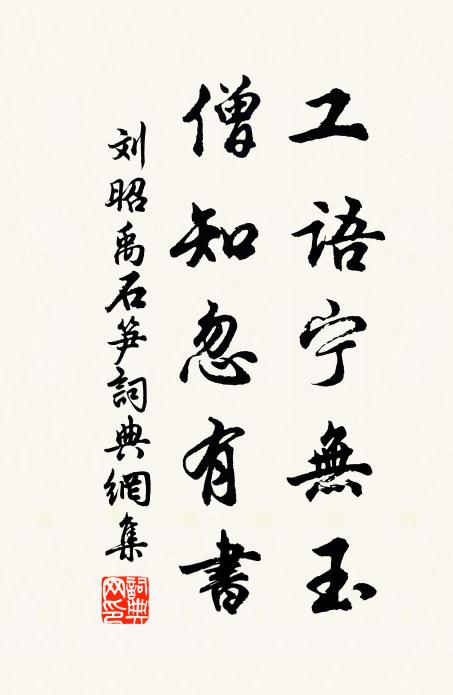 工語宁無玉
僧知忽有書
刘昭禹石笋詞典網集
詞典网印